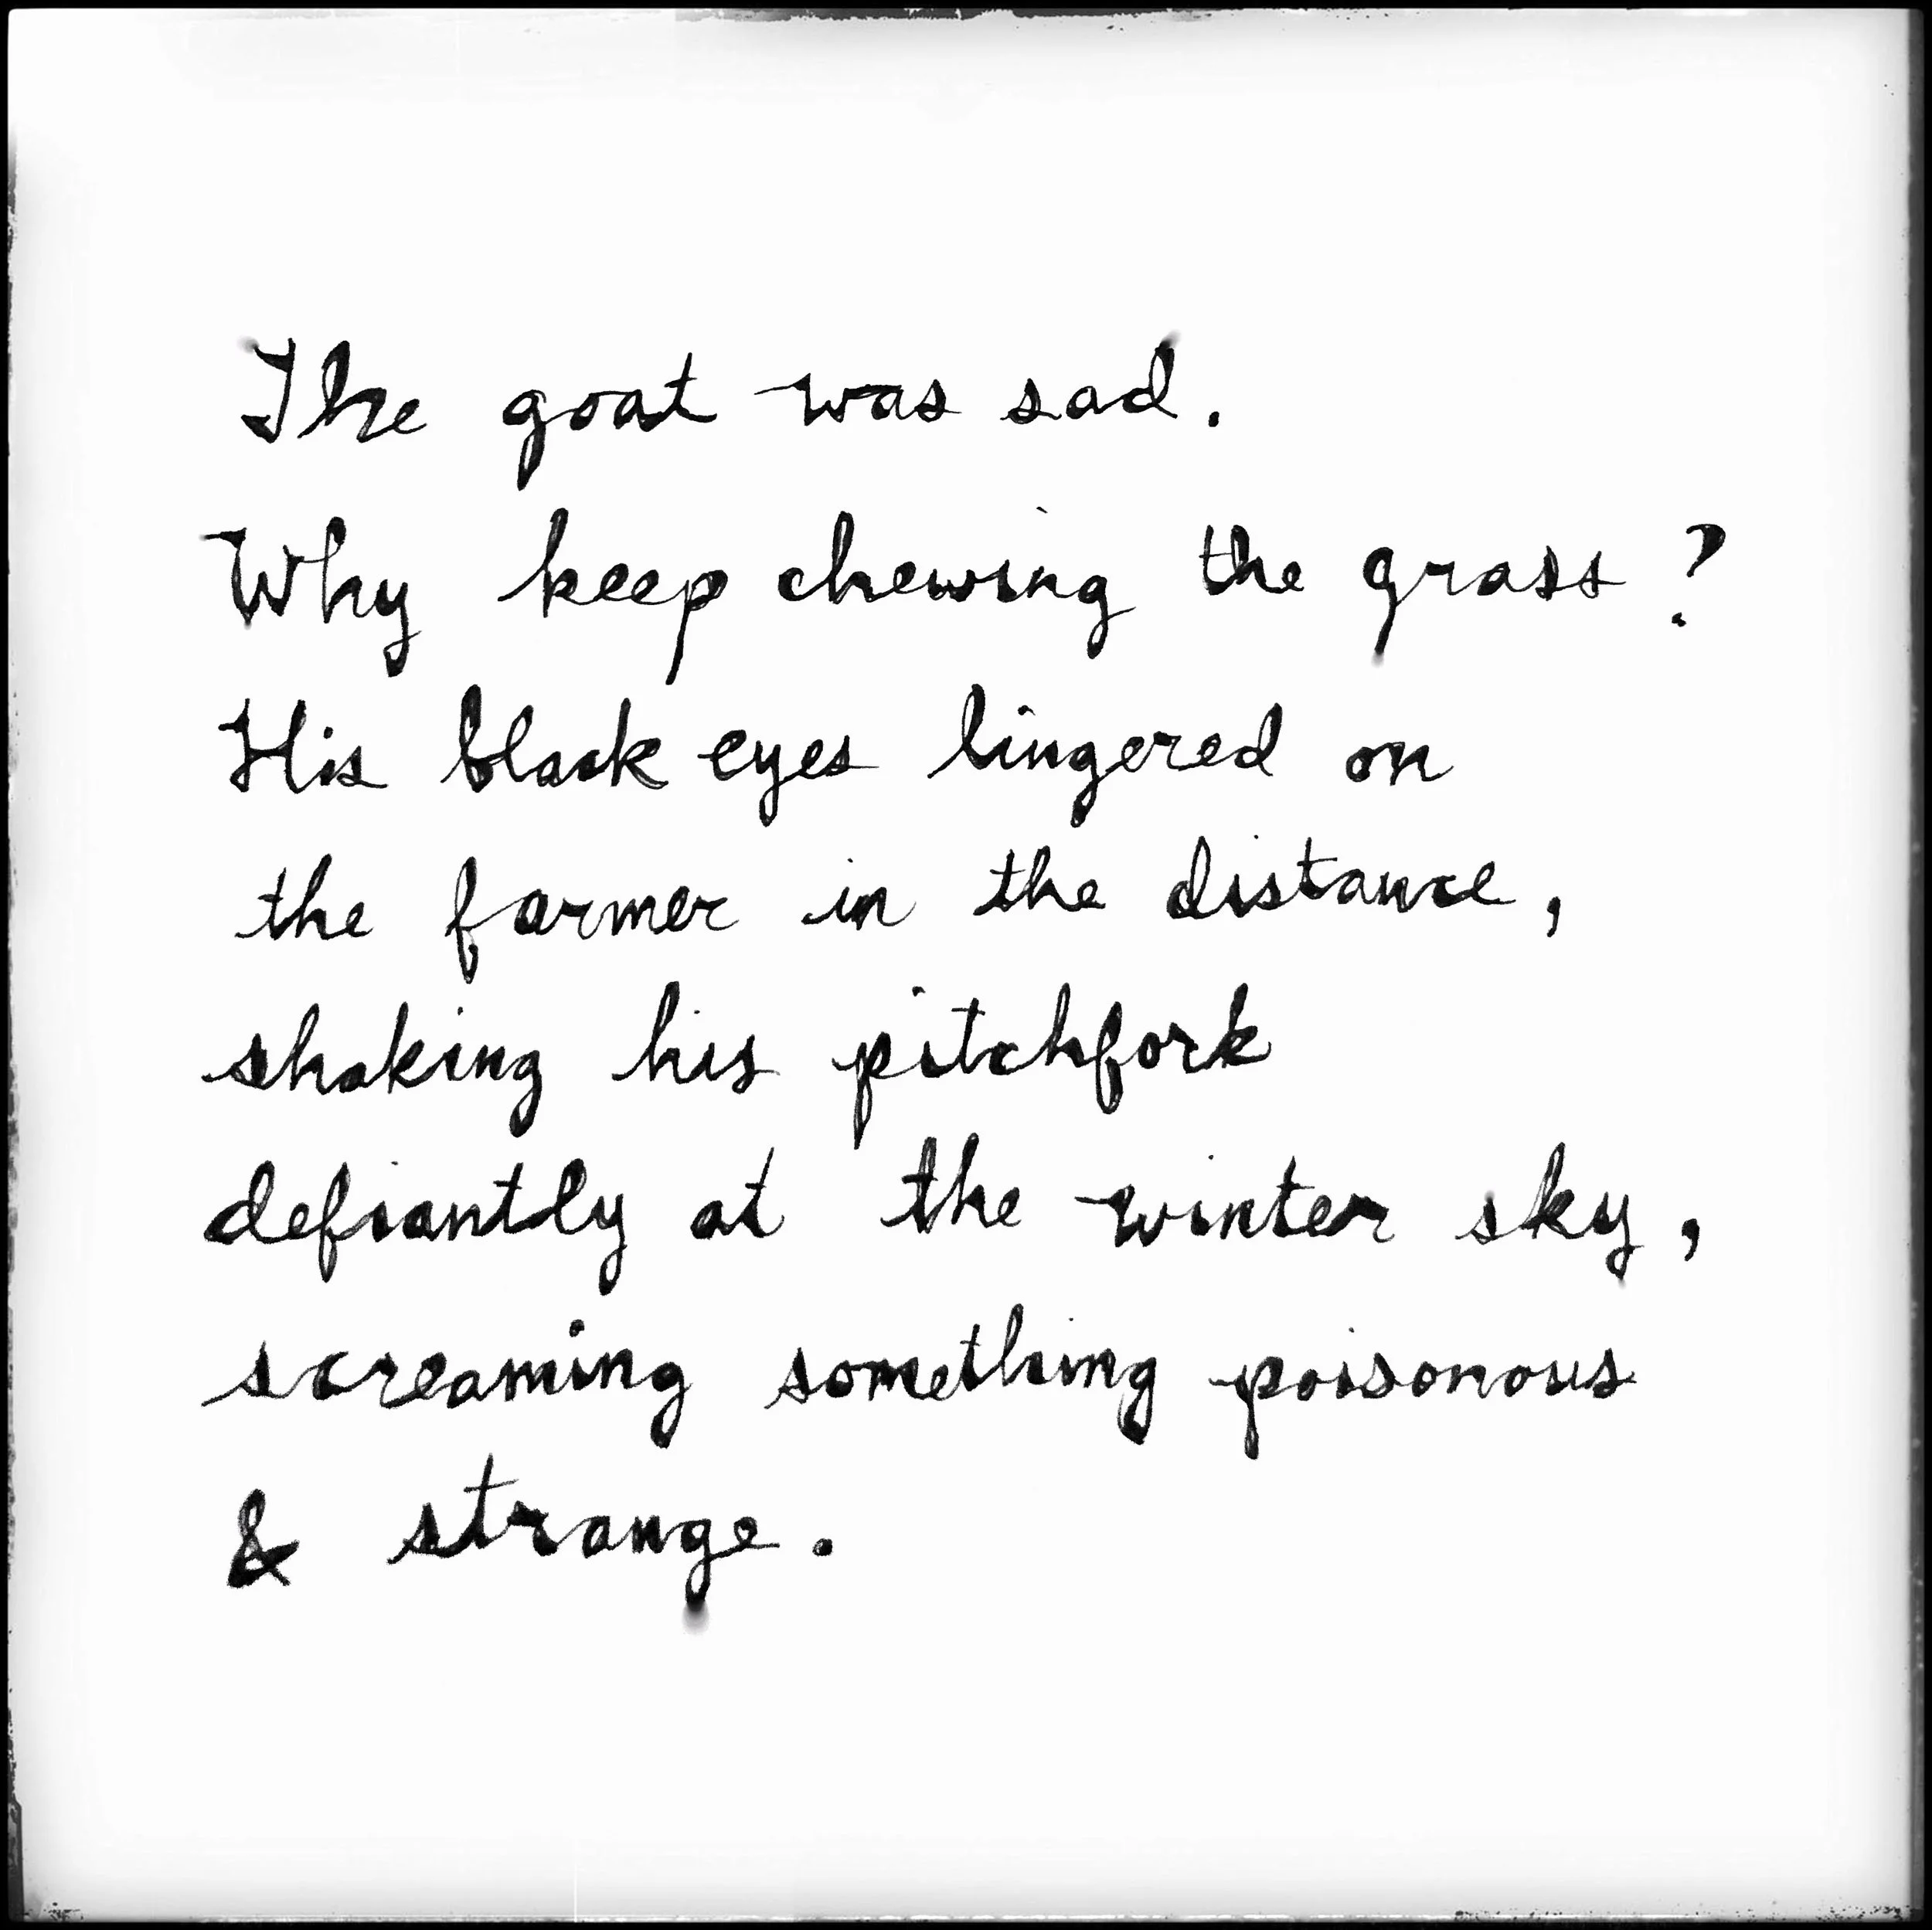 The goat was sad.
Why keep chewing the grass?
His black eyes lingered on
the farmer in the distance,
shaking his pitchfork
defiantly at the winter sky,
screaming something poisonous
& strange.